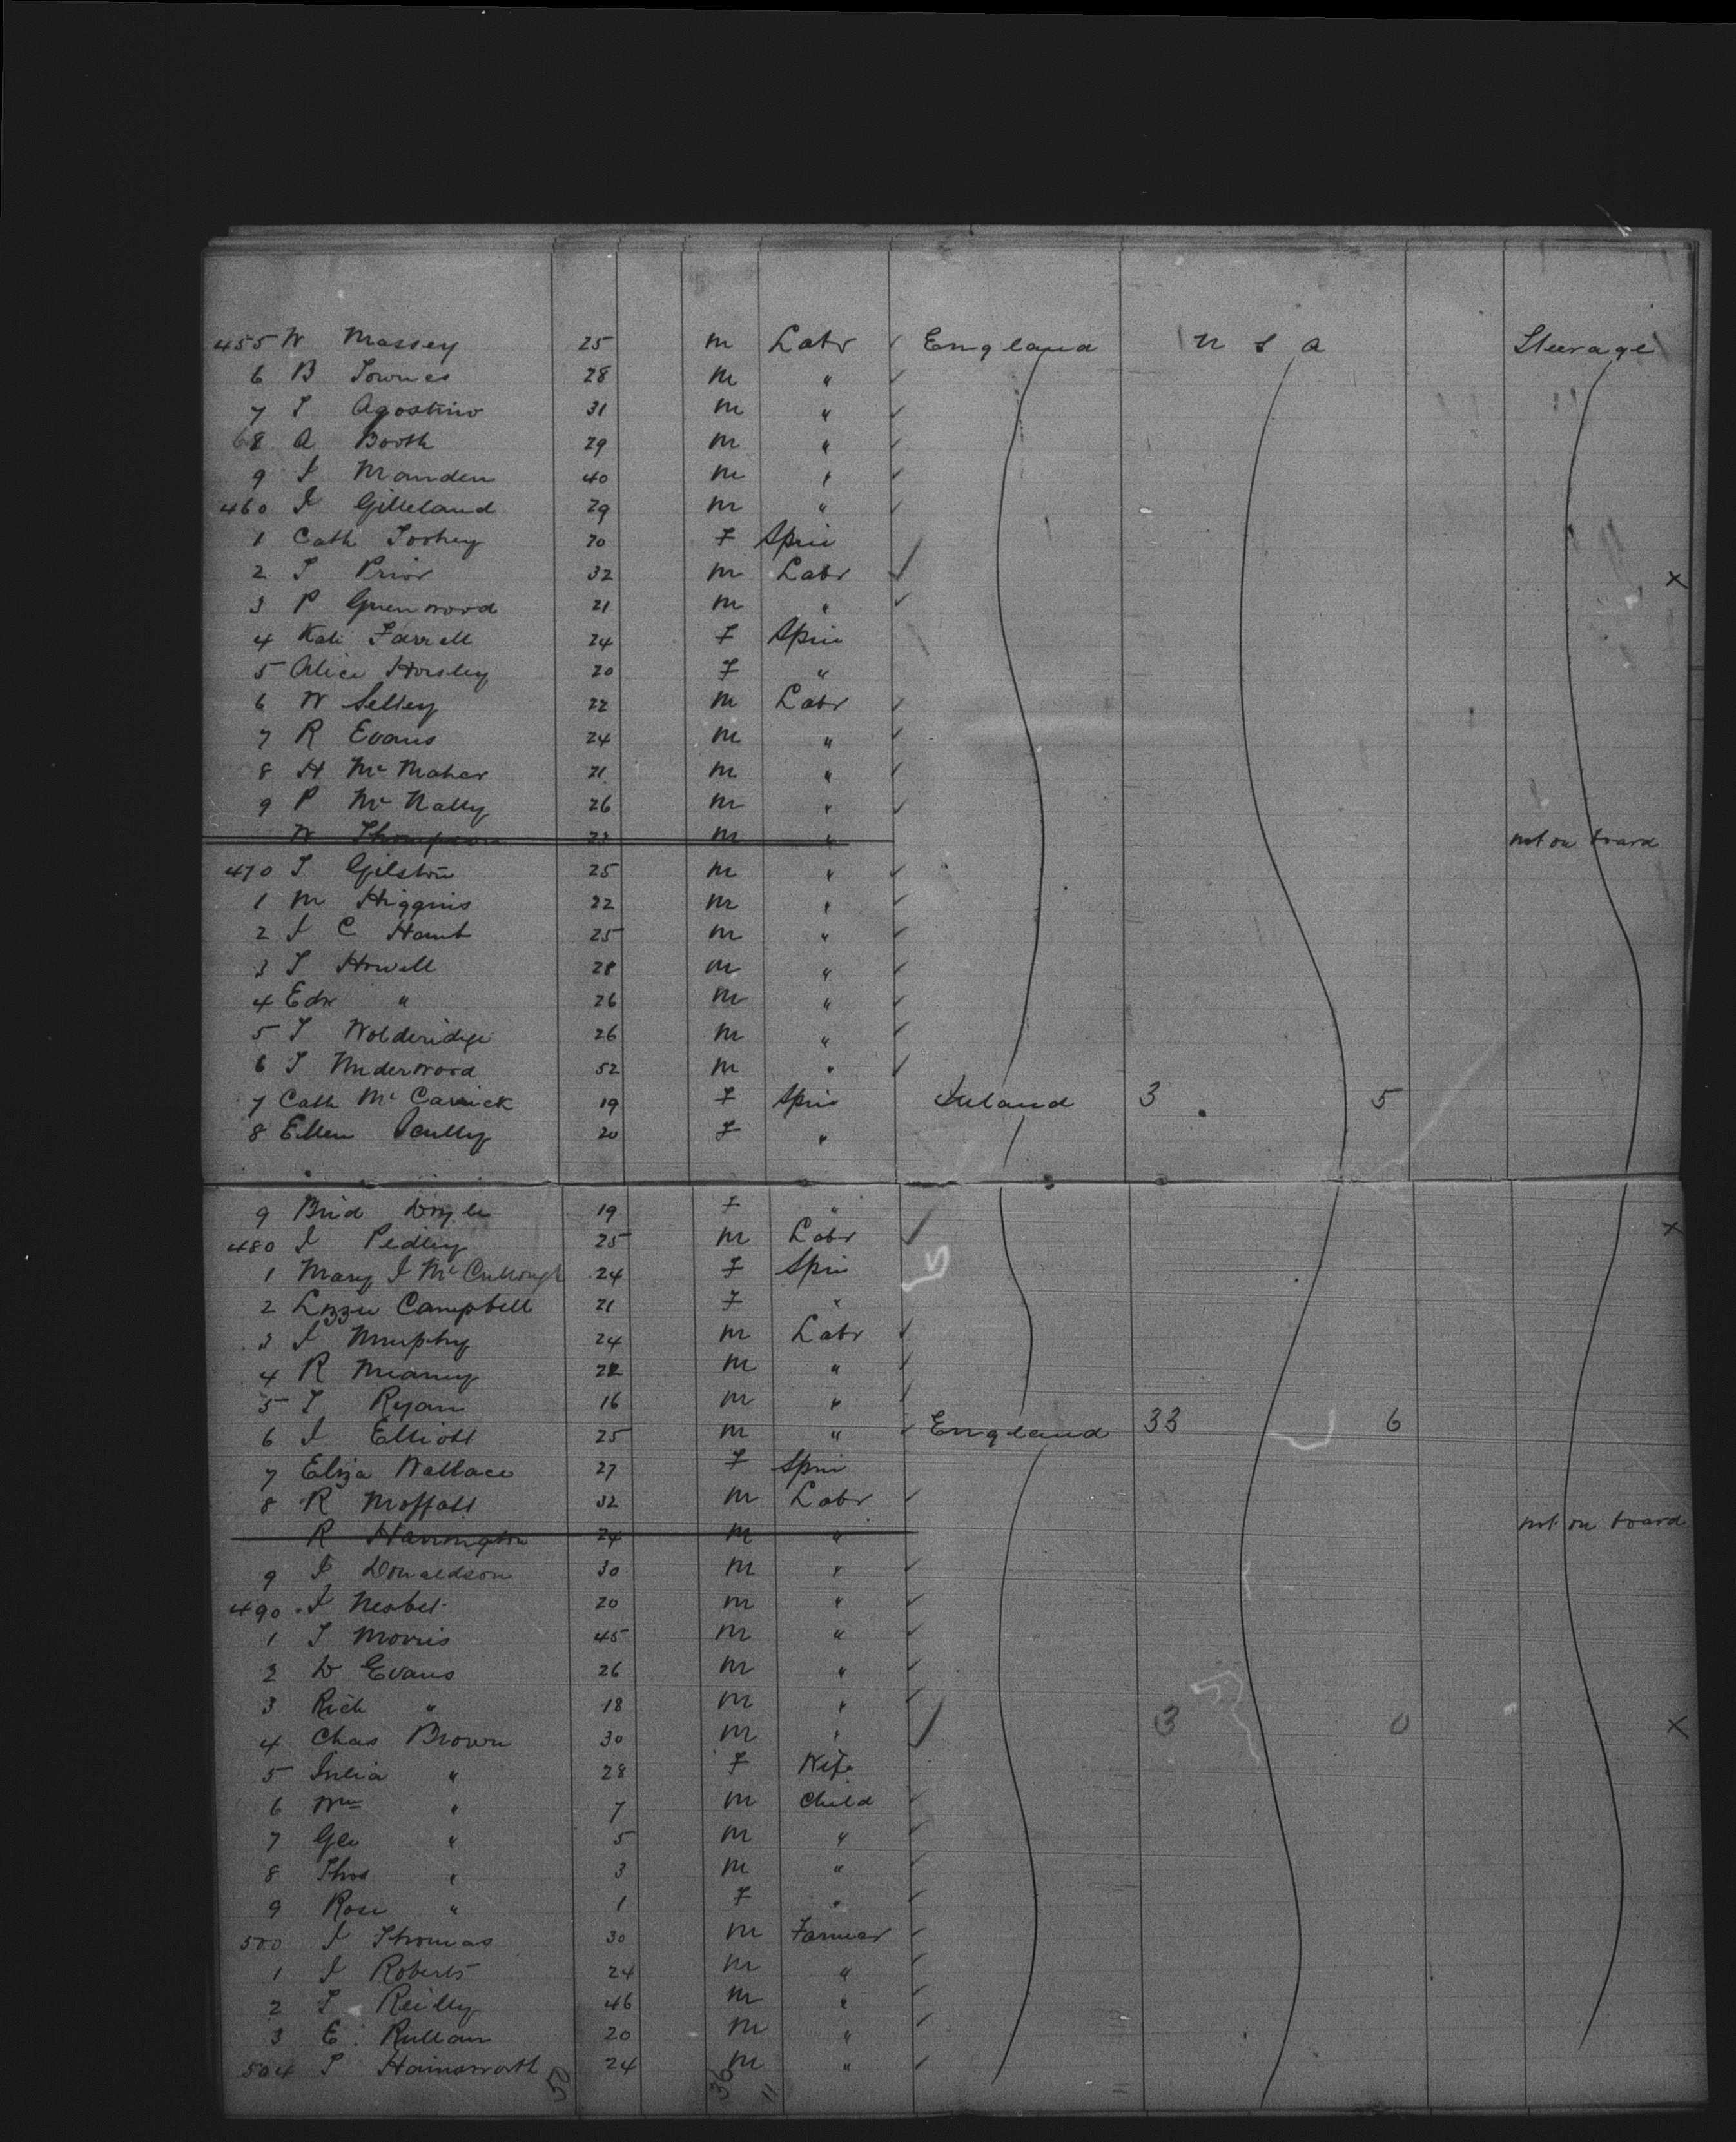 455 W Massey 25 m Labr ✓ England U S A Steerage
6 B Townes 28 m " ✓
7 T Agostino 31 m " ✓
68 A Booth 29 m " ✓
9 J Marnden 40 m " ✓
460 J Gilleland 29 m " ✓
1 Cath Toohey 20 F Spin
2 T Prior 32 m Labr ✓ x
3 P Greenwood 21 m " ✓
4 Kate Farrell 24 F Spin
5 Alice Horsley 20 F "
6 W Selley 22 m Labr ✓
7 R Evans 24 m " ✓
8 H Mc Maher 21 m " ✓
9 P Mc Nally 26 m " ✓
W Thompson 23 m " not on board
470 T Gilston 25 m " ✓
1 M Higgins 22 m " ✓
2 J C Hamb 25 m " ✓
3 T Howell 28 m " ✓
4 Edw " 26 m " ✓
5 T Wolderidge 26 m " ✓
6 T Underwood 52 m " ✓
7 Cath Mc Carrick 19 F Spin Ireland 3 5
8 Ellen Scully 20 F "
9 Brid Doyle 19 F "
480 J Pedley 25 m Labr ✓ x
1 Mary J McCullough 24 F Spin
2 Lizzie Campbell 21 F "
3 J Murphy 24 m Labr ✓
4 R Meaney 22 m " ✓
5 T Ryan 16 m " ✓
6 J Elliott 25 m " ✓ England 33 6
7 Eliza Wallace 27 F Spin
8 R Moffatt 32 m Labr ✓
R Harrington 24 m " not on board
9 J Donaldson 30 m " ✓
490 J Nesbet 20 m " ✓
1 T Morris 45 m " ✓
2 D Evans 26 m " ✓
3 Rich " 18 m " ✓
4 Chas Brown 30 m " ✓ 3 0 x
5 Julia " 28 F Wife
6 Wm " 7 m Child ✓
7 Geo " 5 m " ✓
8 Thos " 3 m " ✓
9 Rose " 1 F " ✓
500 J Thomas 30 m Farmer ✓
1 J Roberts 24 m " ✓
2 T Reilly 46 m " ✓
3 E. Rullan 20 m " ✓
504 T Hainsworth 24 m " ✓
50 36 11